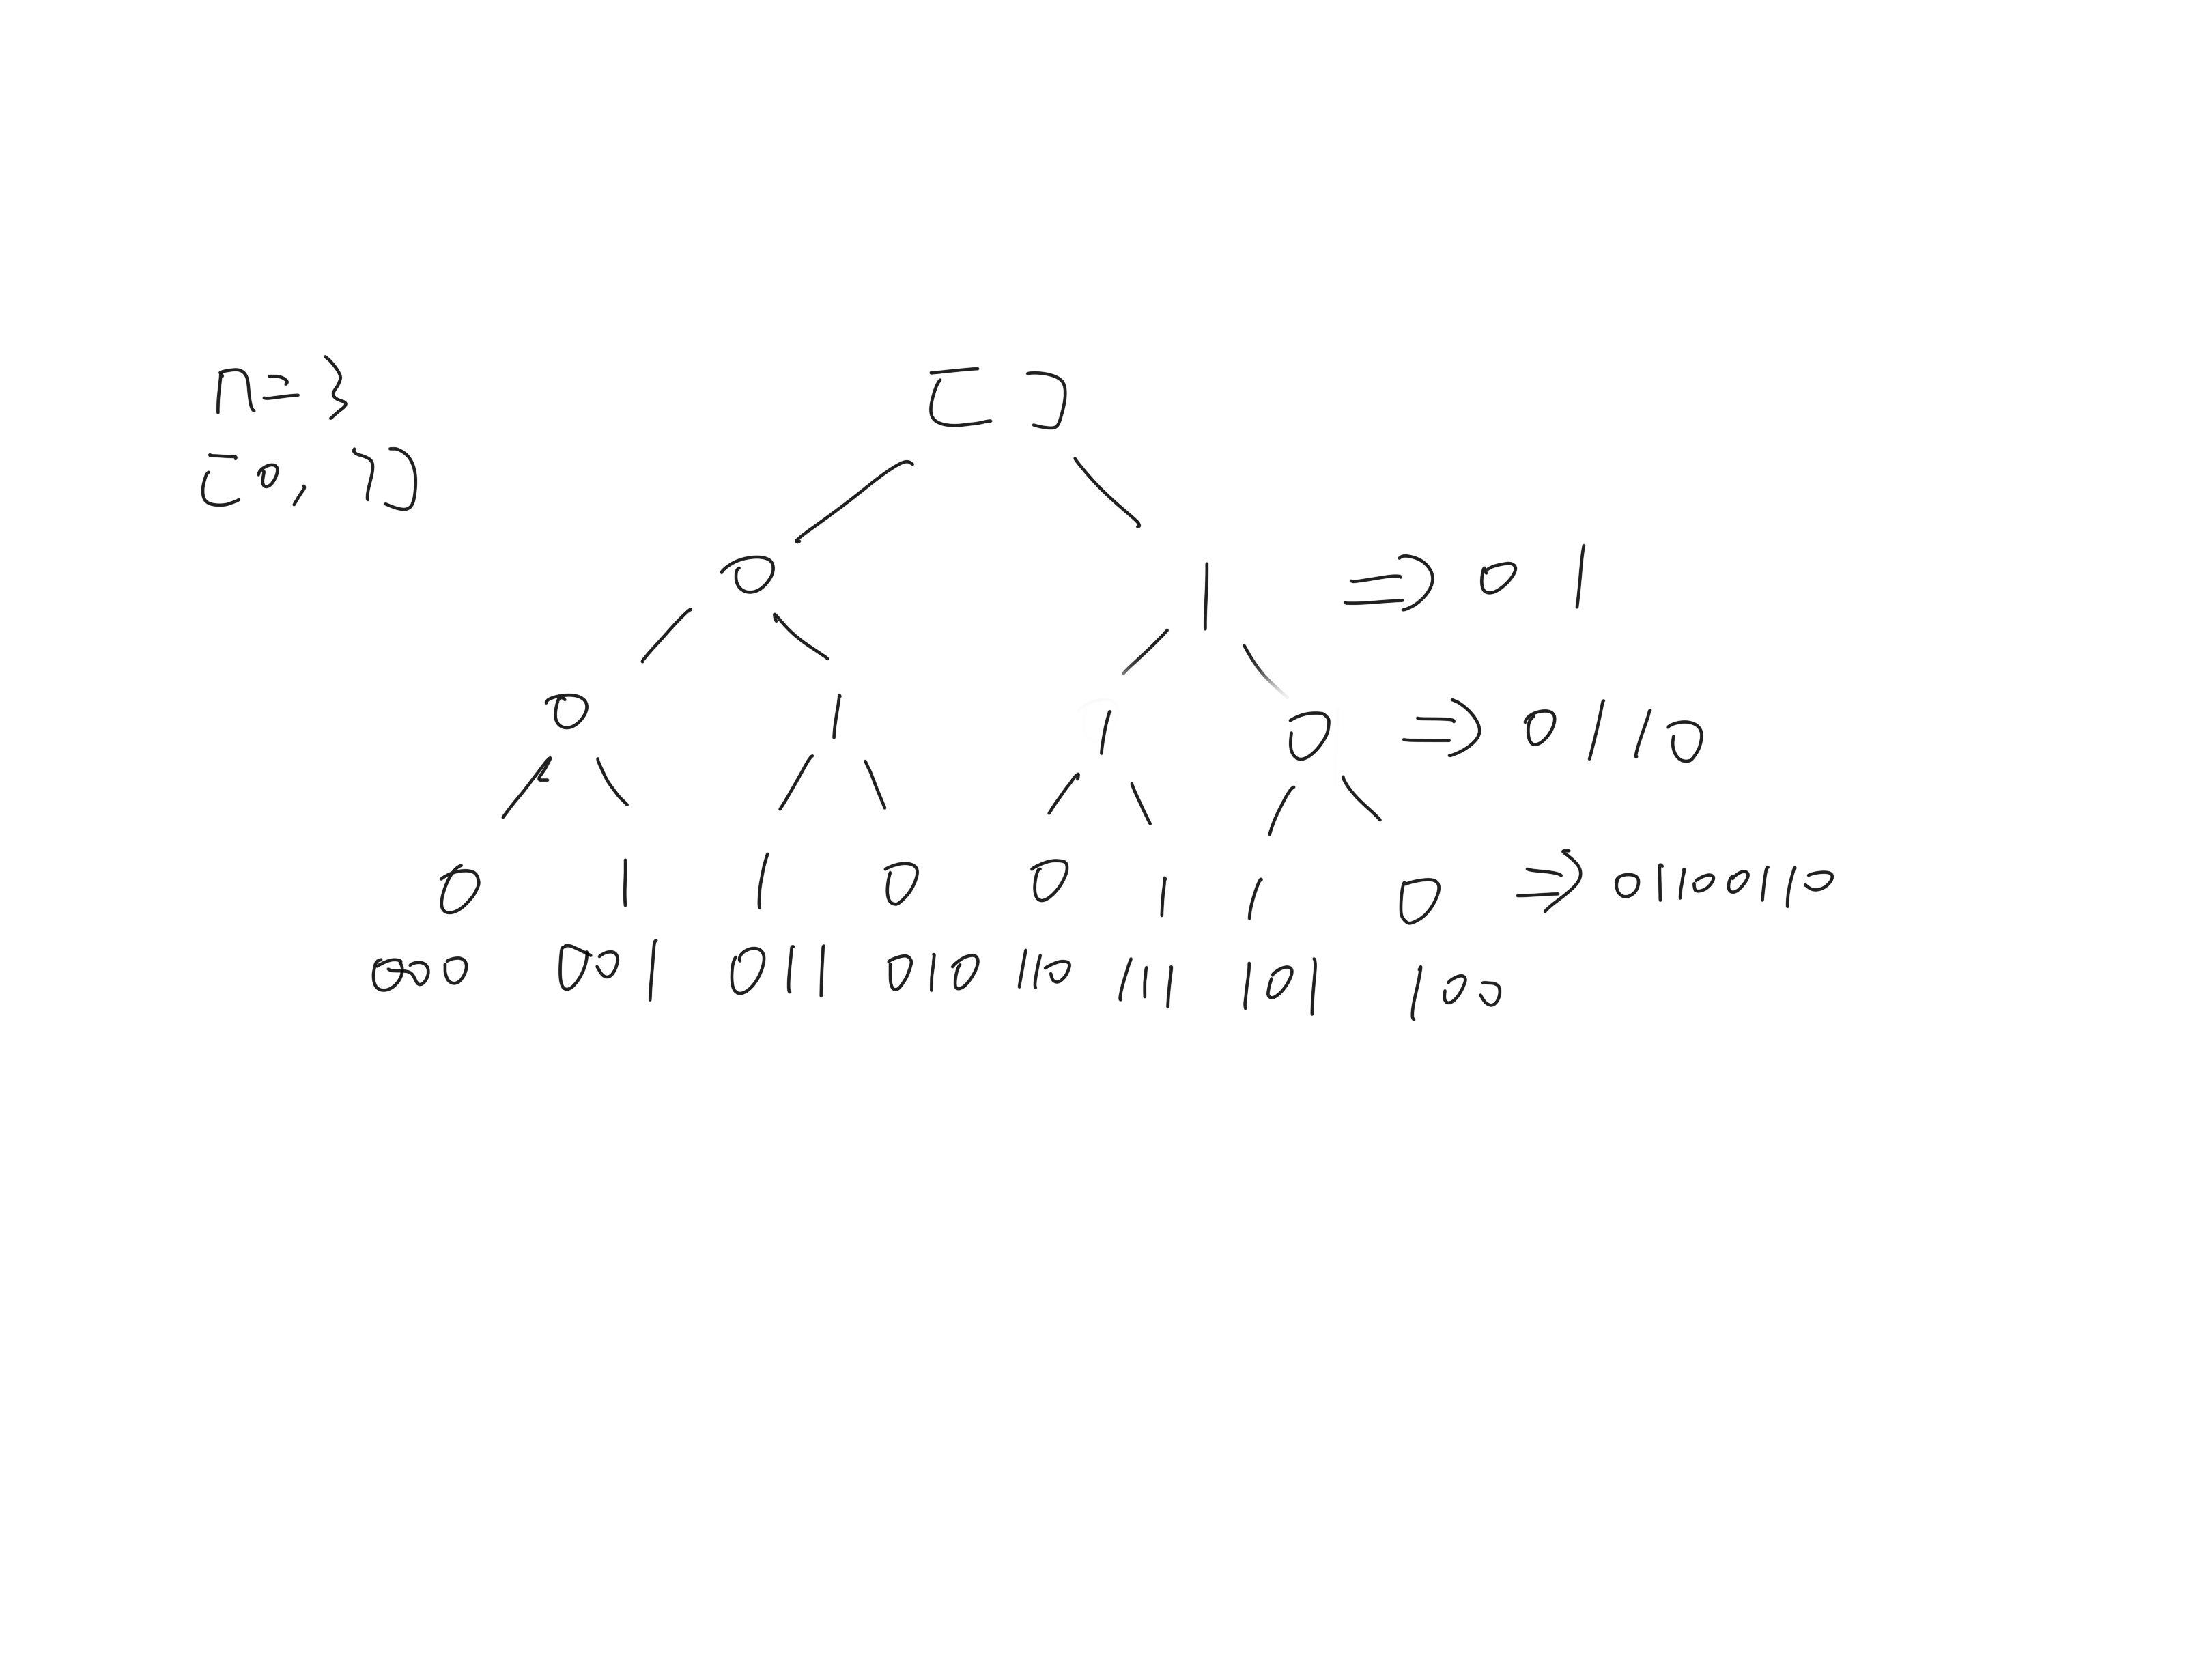 n=3
[ ]
[0, 1]
0 1 ⇒ 0 1
0 1 1 0 ⇒ 0 1 1 0
0 1 1 0 0 1 1 0 ⇒ 01100110
000 001 011 010 110 111 101 100